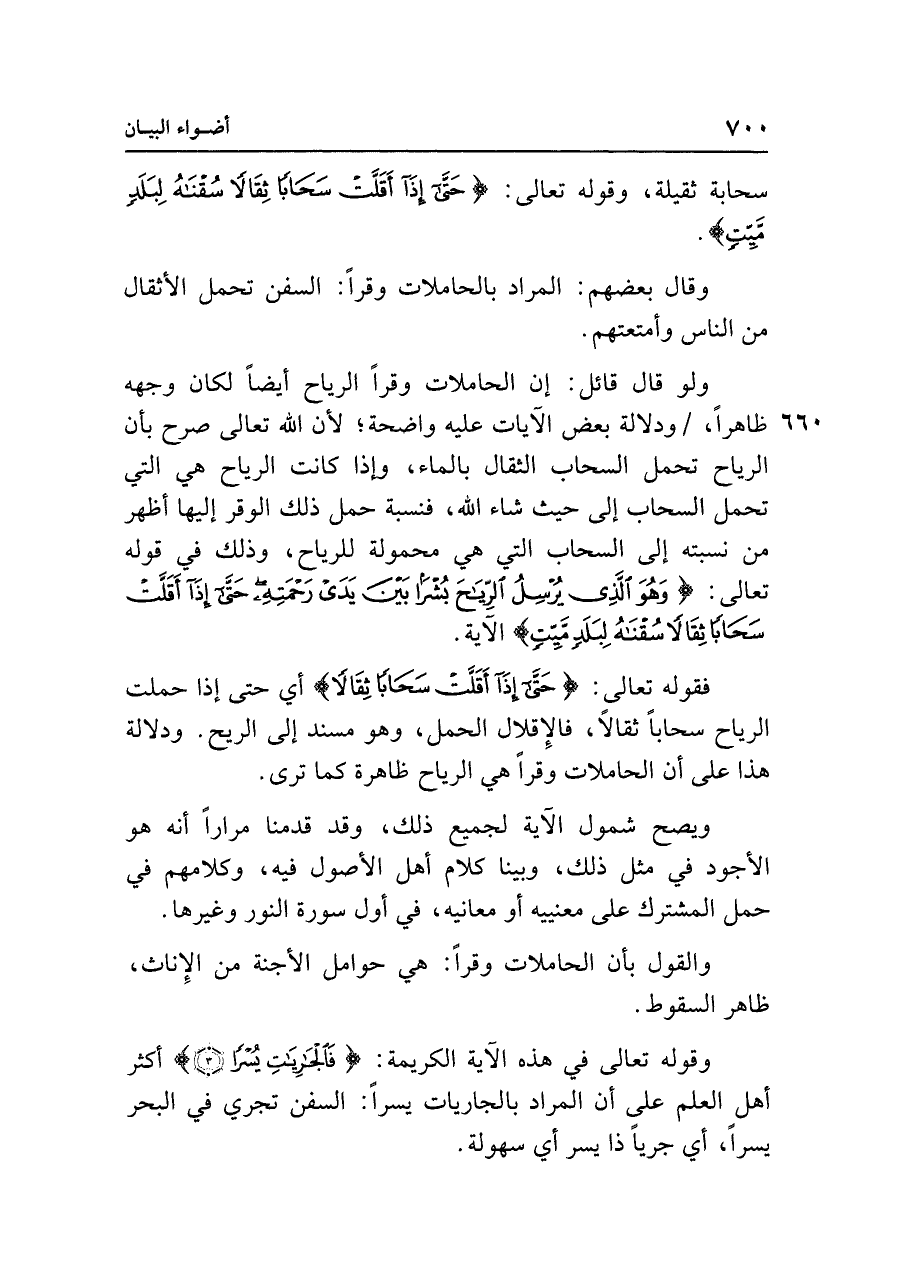 ٧٠٠ أضـواء البيـان
سحابة ثقيلة، وقوله تعالى: ﴿حَتَّىٰٓ إِذَآ أَقَلَّتْ سَحَابًا ثِقَالًا سُقْنَٰهُ لِبَلَدٍ
مَّيِّتٍ﴾.
وقال بعضهم: المراد بالحاملات وقراً: السفن تحمل الأثقال
من الناس وأمتعتهم.
ولو قال قائل: إن الحاملات وقراً الرياح أيضاً لكان وجهه
٦٦٠ ظاهراً، /ودلالة بعض الآيات عليه واضحة؛ لأن الله تعالى صرح بأن
الرياح تحمل السحاب الثقال بالماء، وإذا كانت الرياح هي التي
تحمل السحاب إلى حيث شاء الله، فنسبة حمل ذلك الوقر إليها أظهر
من نسبته إلى السحاب التي هي محمولة للرياح، وذلك في قوله
تعالى: ﴿وَهُوَ ٱلَّذِى يُرْسِلُ ٱلرِّيَٰحَ بُشْرًۢا بَيْنَ يَدَىْ رَحْمَتِهِۦۖ حَتَّىٰٓ إِذَآ أَقَلَّتْ
سَحَابًا ثِقَالًا سُقْنَٰهُ لِبَلَدٍ مَّيِّتٍ﴾ الآية.
فقوله تعالى: ﴿حَتَّىٰٓ إِذَآ أَقَلَّتْ سَحَابًا ثِقَالًا﴾ أي حتى إذا حملت
الرياح سحاباً ثقالاً، فالإقلال الحمل، وهو مسند إلى الريح. ودلالة
هذا على أن الحاملات وقراً هي الرياح ظاهرة كما ترى.
ويصح شمول الآية لجميع ذلك، وقد قدمنا مراراً أنه هو
الأجود في مثل ذلك، وبينا كلام أهل الأصول فيه، وكلامهم في
حمل المشترك على معنييه أو معانيه، في أول سورة النور وغيرها.
والقول بأن الحاملات وقراً: هي حوامل الأجنة من الإناث،
ظاهر السقوط.
وقوله تعالى في هذه الآية الكريمة: ﴿فَٱلْجَٰرِيَٰتِ يُسْرًا ٣﴾ أكثر
أهل العلم على أن المراد بالجاريات يسراً: السفن تجري في البحر
يسراً، أي جرياً ذا يسر أي سهولة.